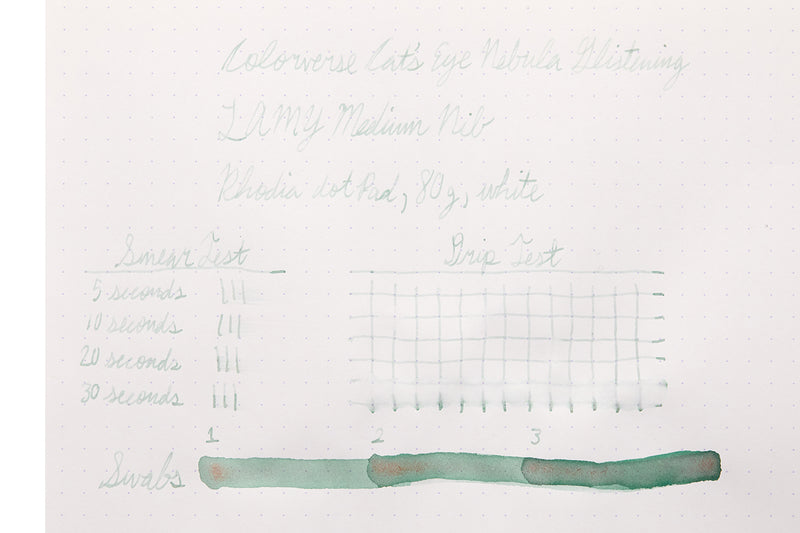 Colorverse Cat's Eye Nebula Glistening
LAMY Medium Nib
Rhodia dot Pad, 80g, white
Smear Test
Drip Test
5 seconds
10 seconds
20 seconds
30 seconds
1 2 3
Swabs